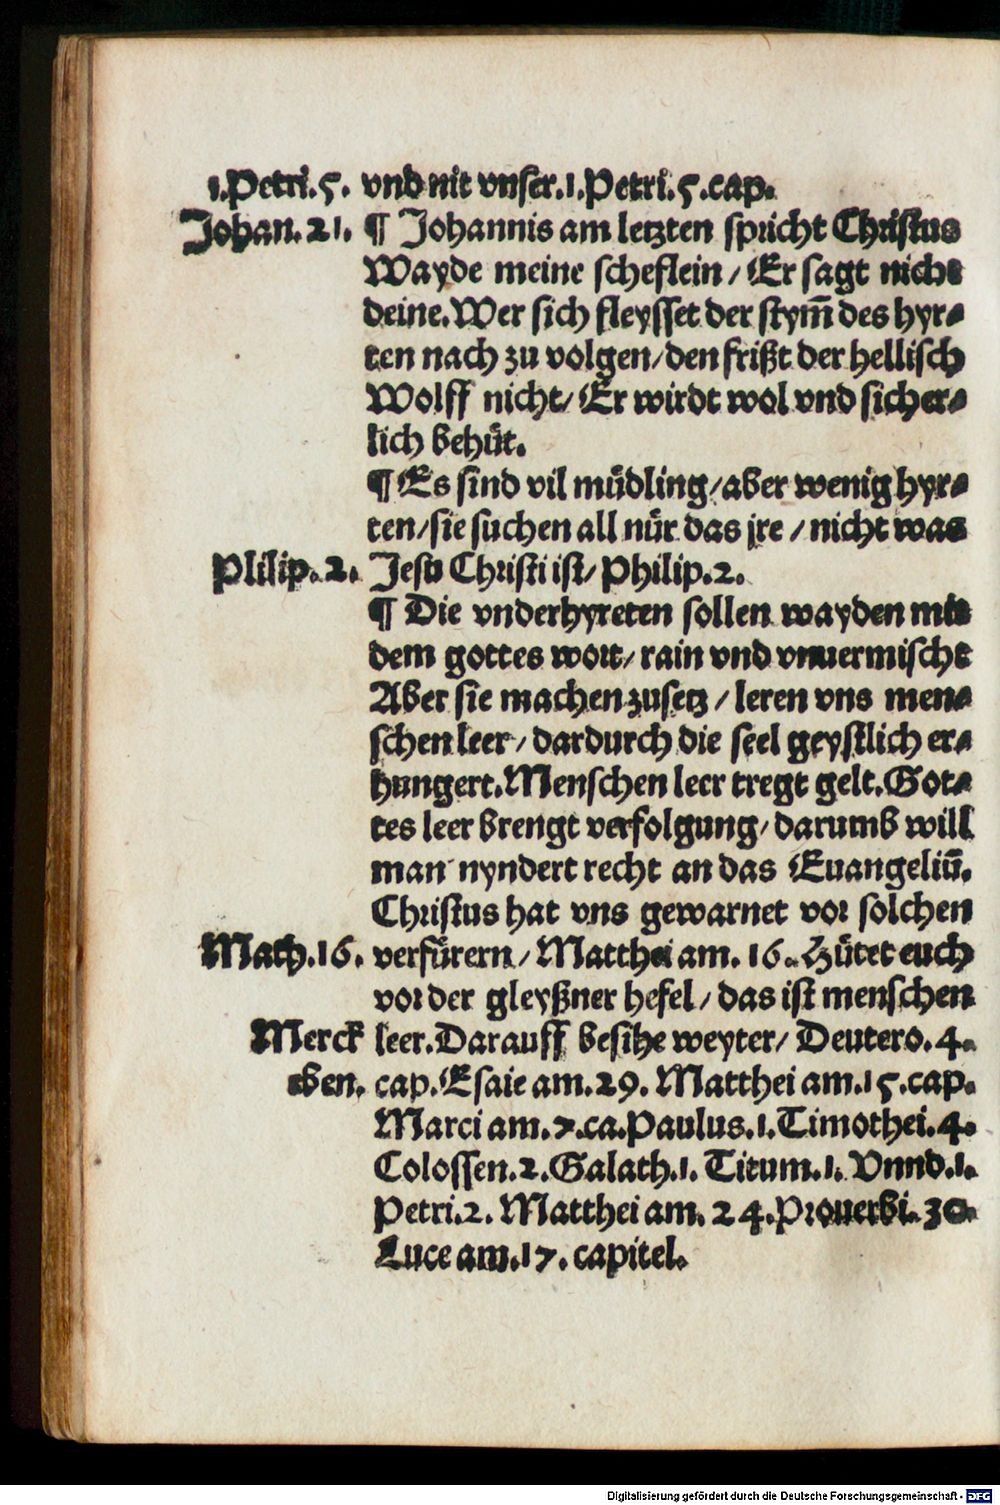 1.Petri.5. vnd nit vnser.1.Petri.5.cap.
Johan.21. ¶ Johannis am letzten spricht Christus
Wayde meine scheflein/ Er sagt nicht
deine.Wer sich fleysset der stym̃ des hyr⸗
ten nach zu volgen/den frißt der hellisch
Wolff nicht/ Er wirdt wol vnd sicher⸗
lich behuͤt.
¶ Es sind vil muͤdling/aber wenig hyr⸗
ten/sie suchen all nuͤr das jre / nicht was
Plilip.2. Jesu Christi ist/ Philip.2.
¶ Die vnderhyreten sollen wayden mit
dem gottes wort/ rain vnd vnuermischt
Aber sie machen zusetz / leren vns men⸗
schen leer/ dardurch die seel geystlich er⸗
hungert.Menschen leer tregt gelt.Got⸗
tes leer brengt verfolgung/ darumb will
man nyndert recht an das Euangeliũ.
Christus hat vns gewarnet vor solchen
Math.16. verfuͤrern/ Matthei am. 16. Huͤtet euch
vor der gleyßner hefel/ das ist menschen
Merck leer.Darauff besihe weyter/ Deutero.4.
eben. cap.Esaie am.29. Matthei am.15.cap.
Marci am.7.ca.Paulus.1.Timothei.4.
Colossen.2.Galath.1. Titum.1. Vnnd.1.
Petri.2. Matthei am. 24.Prouerbi.30.
Luce am.17. capitel.
Digitalisierung gefördert durch die Deutsche Forschungsgemeinschaft - DFG